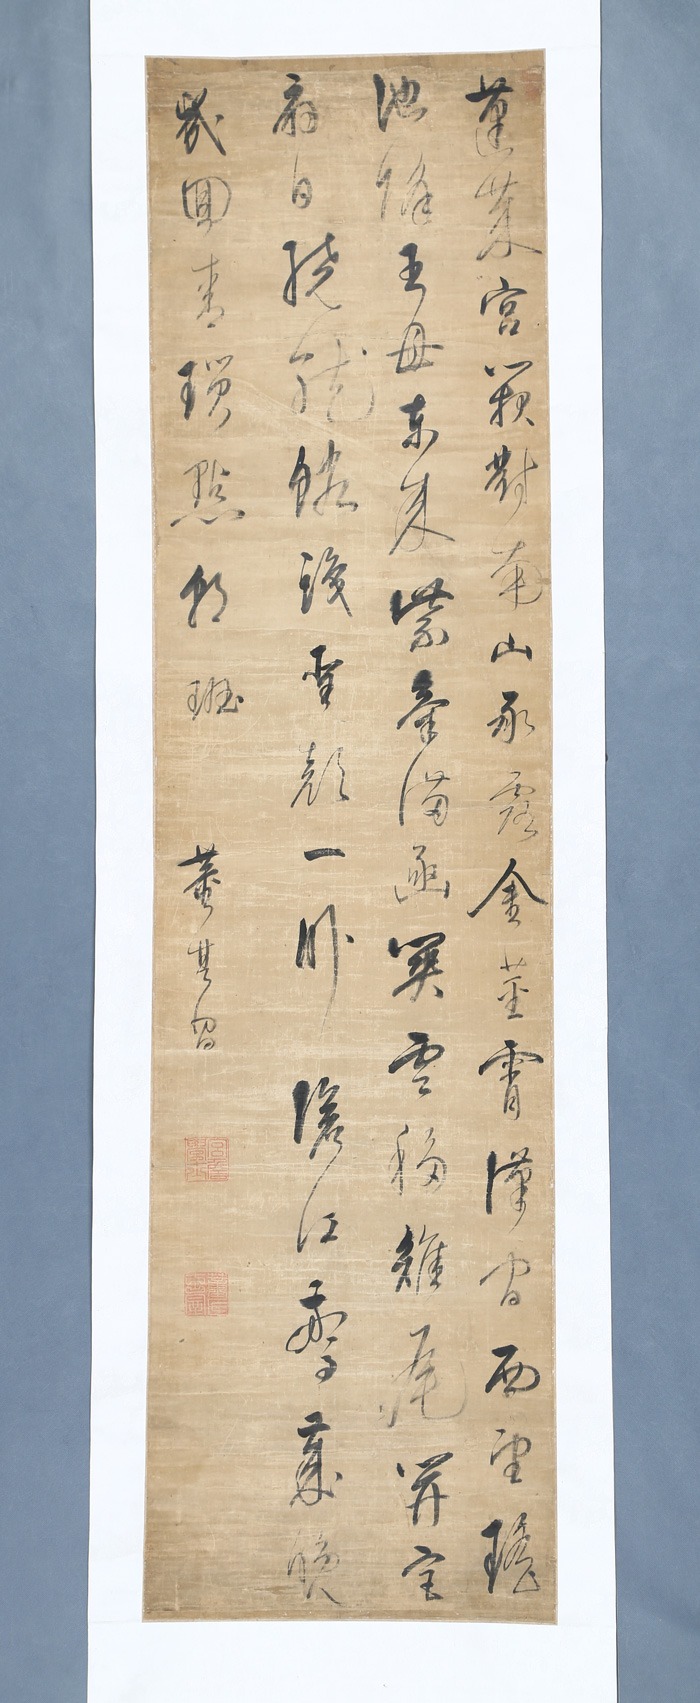 蓬萊宮闕對南山承露金莖霄漢間西望瑤
池降王母東來紫氣滿函關雲移雉尾開宮
扇日繞龍鱗識聖顏一臥滄江驚歲晚
幾回青瑣點朝班
董其昌